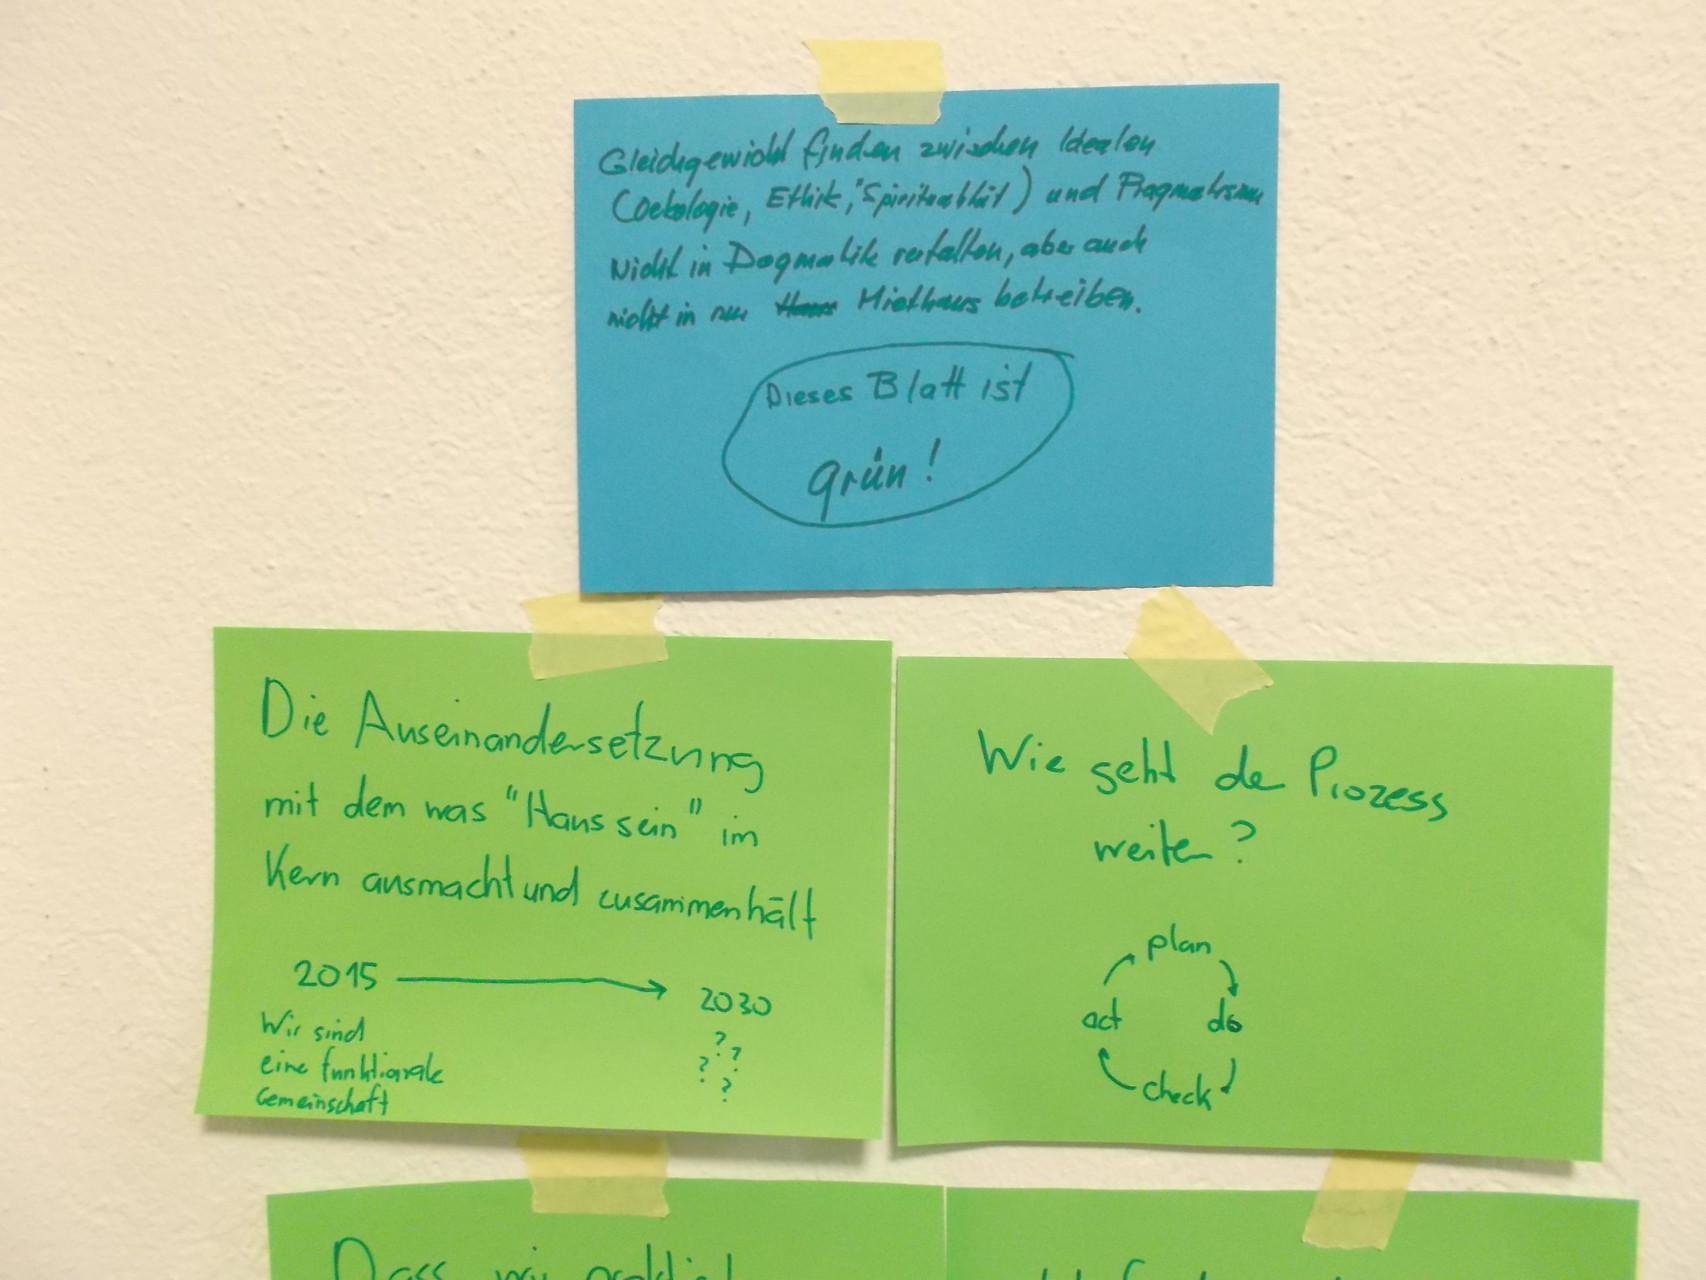 Gleichgewicht finden zwischen Idealen
(Oekologie, Ethik, "Spiritualität) und Pragmatismus
Nicht in Dogmatik verfallen, aber auch
nicht in nur Haus Miethaus betreiben.
Dieses Blatt ist
grün!
Die Auseinandersetzung
mit dem was "Haus sein" im
Kern ausmacht und zusammenhält
2015 → 2030
Wir sind
eine funktionale
Gemeinschaft
? ? ? ?
Wie geht der Prozess
weiter?
plan
act do
check
Dass wir